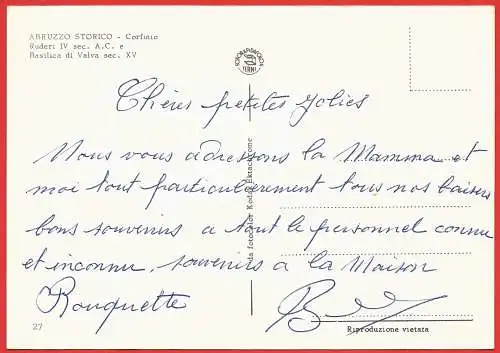 ABRUZZO STORICO - Corfinio
Ruderi IV sec. A.C. e
Basilica di Valva sec. XV
TERNI
Chères petites Jolies
Nous vous adressons la Mamma et
moi tout particulièrement tous nos baisers
bons souvenirs a tout le personnel connu
et inconnu, souvenirs a la Maison
Rouquette
da fotocolor Kodak Ektachrome
27
Riproduzione vietata